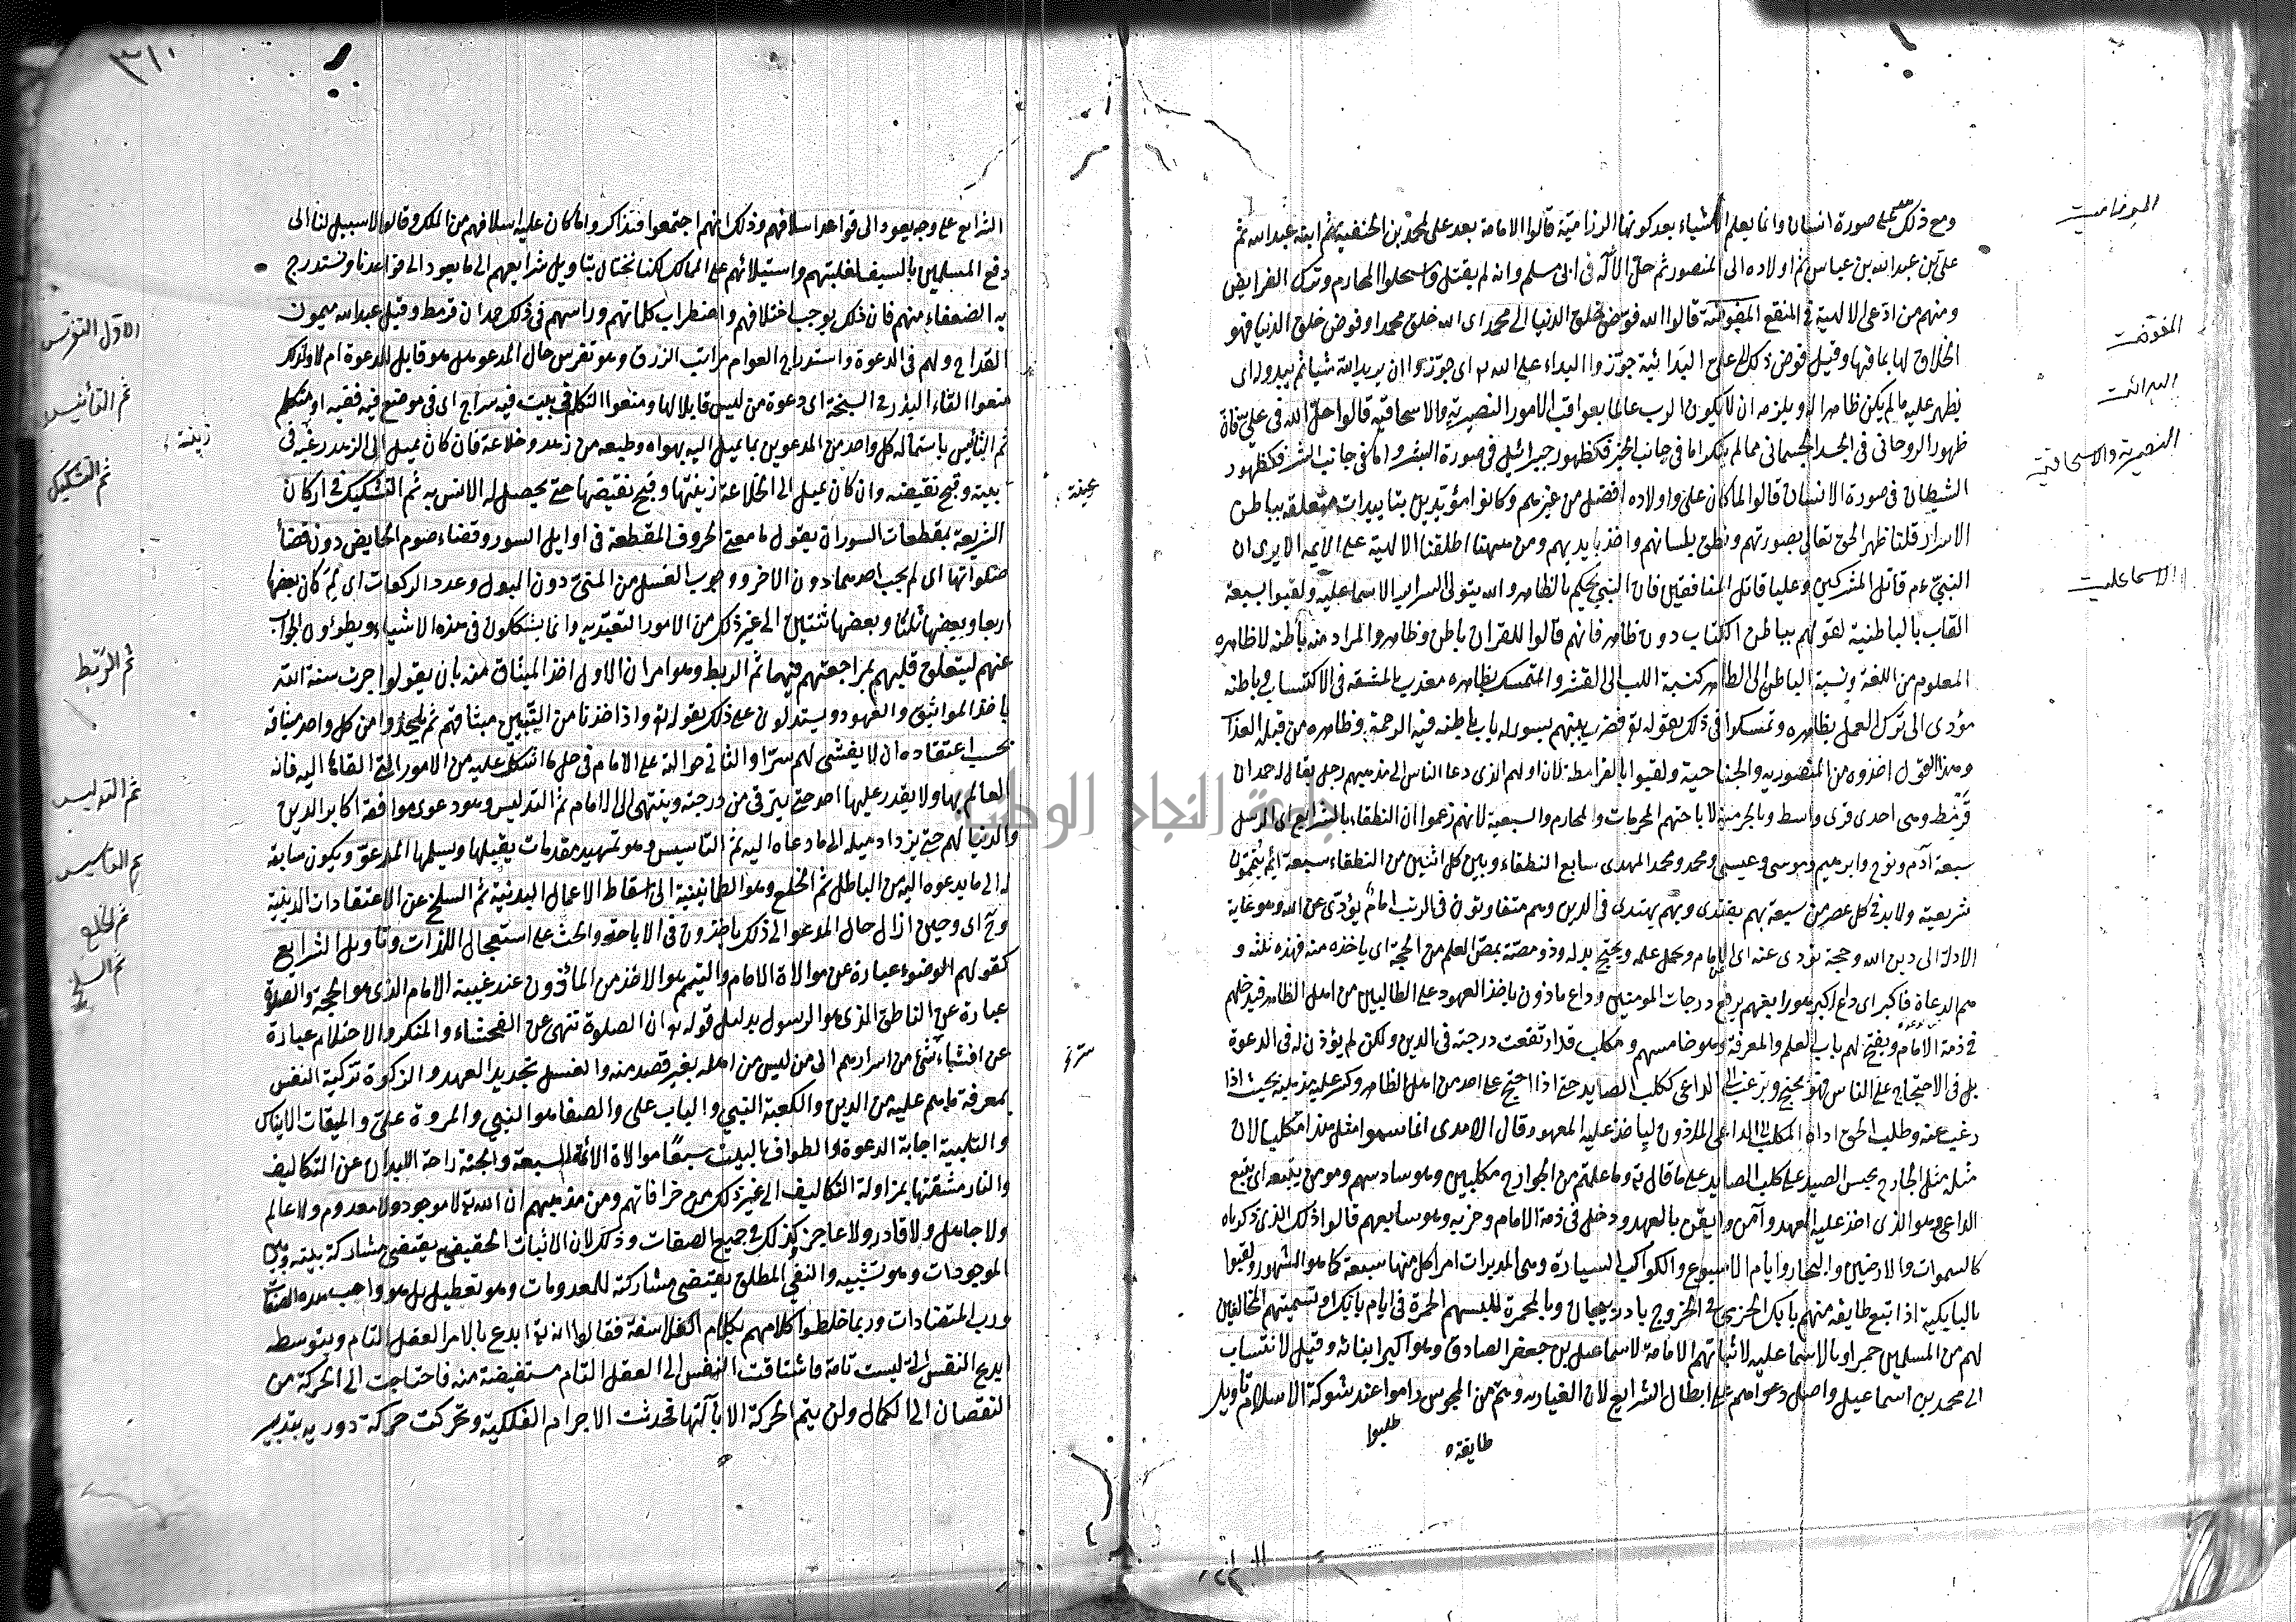 ومع ذلك على صورة انسان وانما يعلم الاشياء بعد كونها الرزامية قالوا الامامة بعد على لمحمد بن الحنفية ثم ابنه عبدالله ثم
على بن عبدالله بن عباس ثم اولاده الى المنصور ثم حل الآله فى ابى مسلم وانه لم يقتل واستحلوا المحارم وترك الفرايض
ومنهم من ادعى الالهية فى المنقع المفوضة قالوا الله فوض خلق الدنيا الى محمد اى الله خلق محمدا وفوض خلق الدنيا فهو
الخلاق لها بما فيها وقيل فوض ذلك الى على البدائية جوزوا البداء على الله اى جوزوا ان يريد الله شيا ثم يبدو له اى
يظهر عليه ما لم يكن ظاهرا له ويلزمه ان لا يكون الرب عالما بعواقب الامور النصيرية والاسحاقية قالوا حل الله فى على فان
ظهور الروحانى فى الجسد الجسمانى مما لم ينكر اما فى جانب الخير فكظهور جبرائيل فى صورة البشر واما فى جانب الشر فكظهور
الشيطان فى صورة الانسان قالوا لما كان على واولاده افضل من غيرهم وكانوا مؤيدين بتاييدات متعلقة بباطن
الاسرار قلنا ظهر الحق تعالى بصورتهم ونطق بلسانهم واخذ بايديهم ومن ههنا اطلقنا الالهية على الايمة الا يرى ان
النبى ءم قاتل المشركين وعليا قاتل المنافقين فان النبى يحكم بالظاهر والله يتولى السراير الاسماعلية ولقبوا بسبعة
القاب بالباطنية لقولهم بباطن الكتاب دون ظاهر فانهم قالوا للقران باطن وظاهر والمراد منه باطنه لا ظاهره
المعلوم من اللغة ونسبة الباطن الى الظاهر كنسبة اللب الى القشر والمتمسك بظاهره معذب بالمشقة فى الاكتساب وباطنه
مؤدى الى ترك العمل بظاهره وتمسكوا فى ذلك بقوله تع فضرب بينهم بسور له باب باطنه فيه الرحمة وظاهره من قبله العذاب
وهذا القول اخذوه من المنصوريه والجناحية ولقبوا بالقرامطة لان اولهم الذى دعا الناس الى مذهبهم رجل يقال له حمدان
قرمط وهى احدى قرى واسط وبالحرمية لاباحتهم المحرمات والمحارم والسبعية لانهم زعموا ان النطقاء بالشرايع اى الرسل
سبعة آدم ونوح وابرهيم وموسى وعيسى ومحمد ومحمد المهدى سابع النطقاء وبين كل اثنين من النطقاء سبعة ايمة يتمون
شريعته ولا بد فى كل عصر من سبعة بهم يقتدى وبهم يهتدى فى الدين وهم متفاوتون فى الرتب امام يؤدى عن الله وهو غاية
الادلة الى دين الله وحجة تؤدى عنه اى الامام وتحمل علمه ويحتج به له وذو مصة يمص العلم من الحجة اى ياخذه منه فهذه ثلثة و
هم الدعاة فاكبر اى داع اكبر هو رابعهم يرفع درجات المومنين وداع ماذون ياخذ العهود على الطالبين من اهل الظاهر فيدخلهم
فى ذمة الامام ويفتح لهم باب العلم والمعرفة وهو خامسهم ومكلب قد ارتفعت درجته فى الدين ولكن لم يؤذن له فى الدعوة
بل فى الاحتجاج على الناس فهو يحتج ويرغب الى الداعى ككلب الصايد حتى اذا احتج على احد من اهل الظاهر وكسر عليه مذهبه بحيث اذا
رغب عنه وطلب الحق اداه المكلب الى الداعى الماذون لياخذ عليه العهود قال الامدى انما سموا مثل هذا مكلبا لان
مثله مثل الجارح يحبس الصيد على كلب الصايد على ما قال تع وما علمتم من الجوارح مكلبين وهو سادسهم ومومن يتبعه اى يتبع
الداعى وهو الذى اخذ عليه العهد وآمن وايقن بالعهد ودخل فى ذمة الامام وحزبه وهو سابعهم قالوا ذلك الذى ذكرناه
كالسموات والارضين والبحار وايام الاسبوع والكواكب السيارة وهى المدبرات امرا كل منها سبعة كما هو المشهور ولقبوا
بالبابكية اذ اتبع طايفه منهم بابك الخرمى فى الخروج باذربيجان وبالمحمرة للبسهم الحمرة فى ايام بابك او تسميتهم المخالفين
لهم من المسلمين حمرا وبالاسماعليه لاثباتهم الامامة لاسماعيل بن جعفر الصادق وهو اكبر ابنائه وقيل لانتساب
الى محمد بن اسماعيل واصل دعواهم على ابطال الشرايع لان الغياريه وهم من المجوس راموا عند شوكة الاسلام تاويل
طلبوا
طايفة
المرزامية
المفوضة
البدائية
النصيرية والاسحاقية
الاسماعلية
٣١٠
الشرايع على وجه يعود الى قواعد اسلافهم وذلك انهم اجتمعوا فتذاكروا ما كان عليه اسلافهم من الملك وقالوا لا سبيل لنا الى
دفع المسلمين بالسيف لغلبتهم واستيلائهم على الممالك لكنا نحتال بتاويل شرايعهم الى ما يعود الى قواعدنا ونستدرج
به الضعفاء منهم فان ذلك يوجب اختلافهم واضطراب كلماتهم ورأسهم فى ذلك حمدان قرمط وقيل عبدالله ميمون
القداح ولهم فى الدعوة واستدراج العوام مراتب الزرق وهو تفرس حال المدعو هل هو قابل للدعوة ام لا ولذلك
منعوا القاء البذر فى السبخة اى دعوة من ليس قابلا لها ومنعوا التكلم فى بيت فيه سراج اى فى موضع فيه فقيه او متكلم
ثم التأنيس باستمالة كل واحد من المدعوين بما يميل اليه بهواه وطبعه من زهد وخلاعة فان كان يميل الى الزهد رغبه فى
زينه وقبح نقيضه وان كان يميل الى الخلاعة زينها وقبح نقيضها حتى يحصل له الانس به ثم التشكيك فى اركان
الشريعة بمقطعات السور ان يقول ما معنى الحروف المقطعة فى اوايل السور وقضاء صوم الحايض دون قضاء
صلواتها اى لم يجب احدهما دون الاخر ووجوب الغسل من المنى دون البول وعدد الركعات اى لم كان بعضها
اربعا وبعضها ثلثا وبعضها ثنتين الى غير ذلك من الامور التعبدية وانما يشككون فى هذه الاشياء ويطوون الجواب
عنهم ليتعلق قلبهم بمراجعتهم فيها ثم الربط وهو امران الاول اخذ الميثاق منه بان يقولوا جرت سنة الله
باخذ المواثيق والعهود ويستدلون على ذلك بقوله تع واذ اخذنا من النبيين ميثاقهم ثم ليأخذوا من كل واحد ميثاقه
بحسب اعتقاده ان لا يفشى لهم سرا والثانى حوالته على الامام فى حل ما اشكل عليه من الامور التى القاها اليه فانه
العالم بها ولا يقدر عليها احد حتى يترقى من درجته وينتهى الى الامام ثم التدليس وهو دعوى موافقة اكابر الدين
والدنيا لهم حتى يزداد ميله الى ما دعاه اليه ثم التاسيس وهو تمهيد مقدمات يقبلها ويسلمها المدعو ويكون سابقة
له الى ما يدعوه اليه من الباطل ثم الخلع وهو الطمانينة الى اسقاط الاعمال البدنية ثم السلخ عن الاعتقادات الدينية
وح اى وحين اذ ال حال المدعو الى ذلك ياخذون فى الاباحة والحث على استعجال اللذات وتاويل الشرايع
كقولهم الوضوء عبارة عن موالاة الامام والتيمم هو الاخذ من المأذون عند غيبة الامام الذى هو الحجة والصلوة
عبارة عن الناطق الذى هو الرسول بدليل قوله تع ان الصلوة تنهى عن الفحشاء والمنكر والاحتلام عبارة
عن افشاء شىء من اسرارهم الى من ليس من اهله بغير قصد منه والغسل تجديد العهد والزكوة تزكية النفس
بمعرفة ما هم عليه من الدين والكعبة النبى والباب على والصفا هو النبى والمروة على والميقات الايناس
والتلبية اجابة الدعوة والطواف بالبيت سبعا موالاة الائمة السبعة والجنة راحة الابدان عن التكاليف
والنار مشقتها بمزاولة التكاليف الى غير ذلك من خرافاتهم ومن مذهبهم ان الله تع لا موجود ولا معدوم ولا عالم
ولا جاهل ولا قادر ولا عاجز وكذلك فى جميع الصفات وذلك لان الاثبات الحقيقى يقتضى مشاركة بينه وبين
الموجودات وهو تشبيه والنفى المطلق يقتضى مشاركته للمعدومات وهو تعطيل بل هو واهب هذه الصفات
ورب المتضادات وربما خلطوا كلامهم بكلام الفلاسفة فقالوا انه تع ابدع بالامر العقل التام وبتوسطه
ابدع النفس التى ليست تامة فاشتاقت النفس الى العقل التام مستفيضة منه فاحتاجت الى الحركة من
النقصان الى الكمال ولن يتم الحركة الا بآلتها فحدثت الاجرام الفلكية وتحركت حركة دورية بتدبير
الاول التفرس
ثم التأنيس
ثم التشكيك
ثم الربط
ثم التدليس
ثم التاسيس
ثم الخلع
ثم السلخ
جامعة النجاح الوطنية